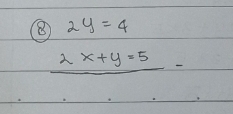 ⑧ 2y = 4
2x+y=5